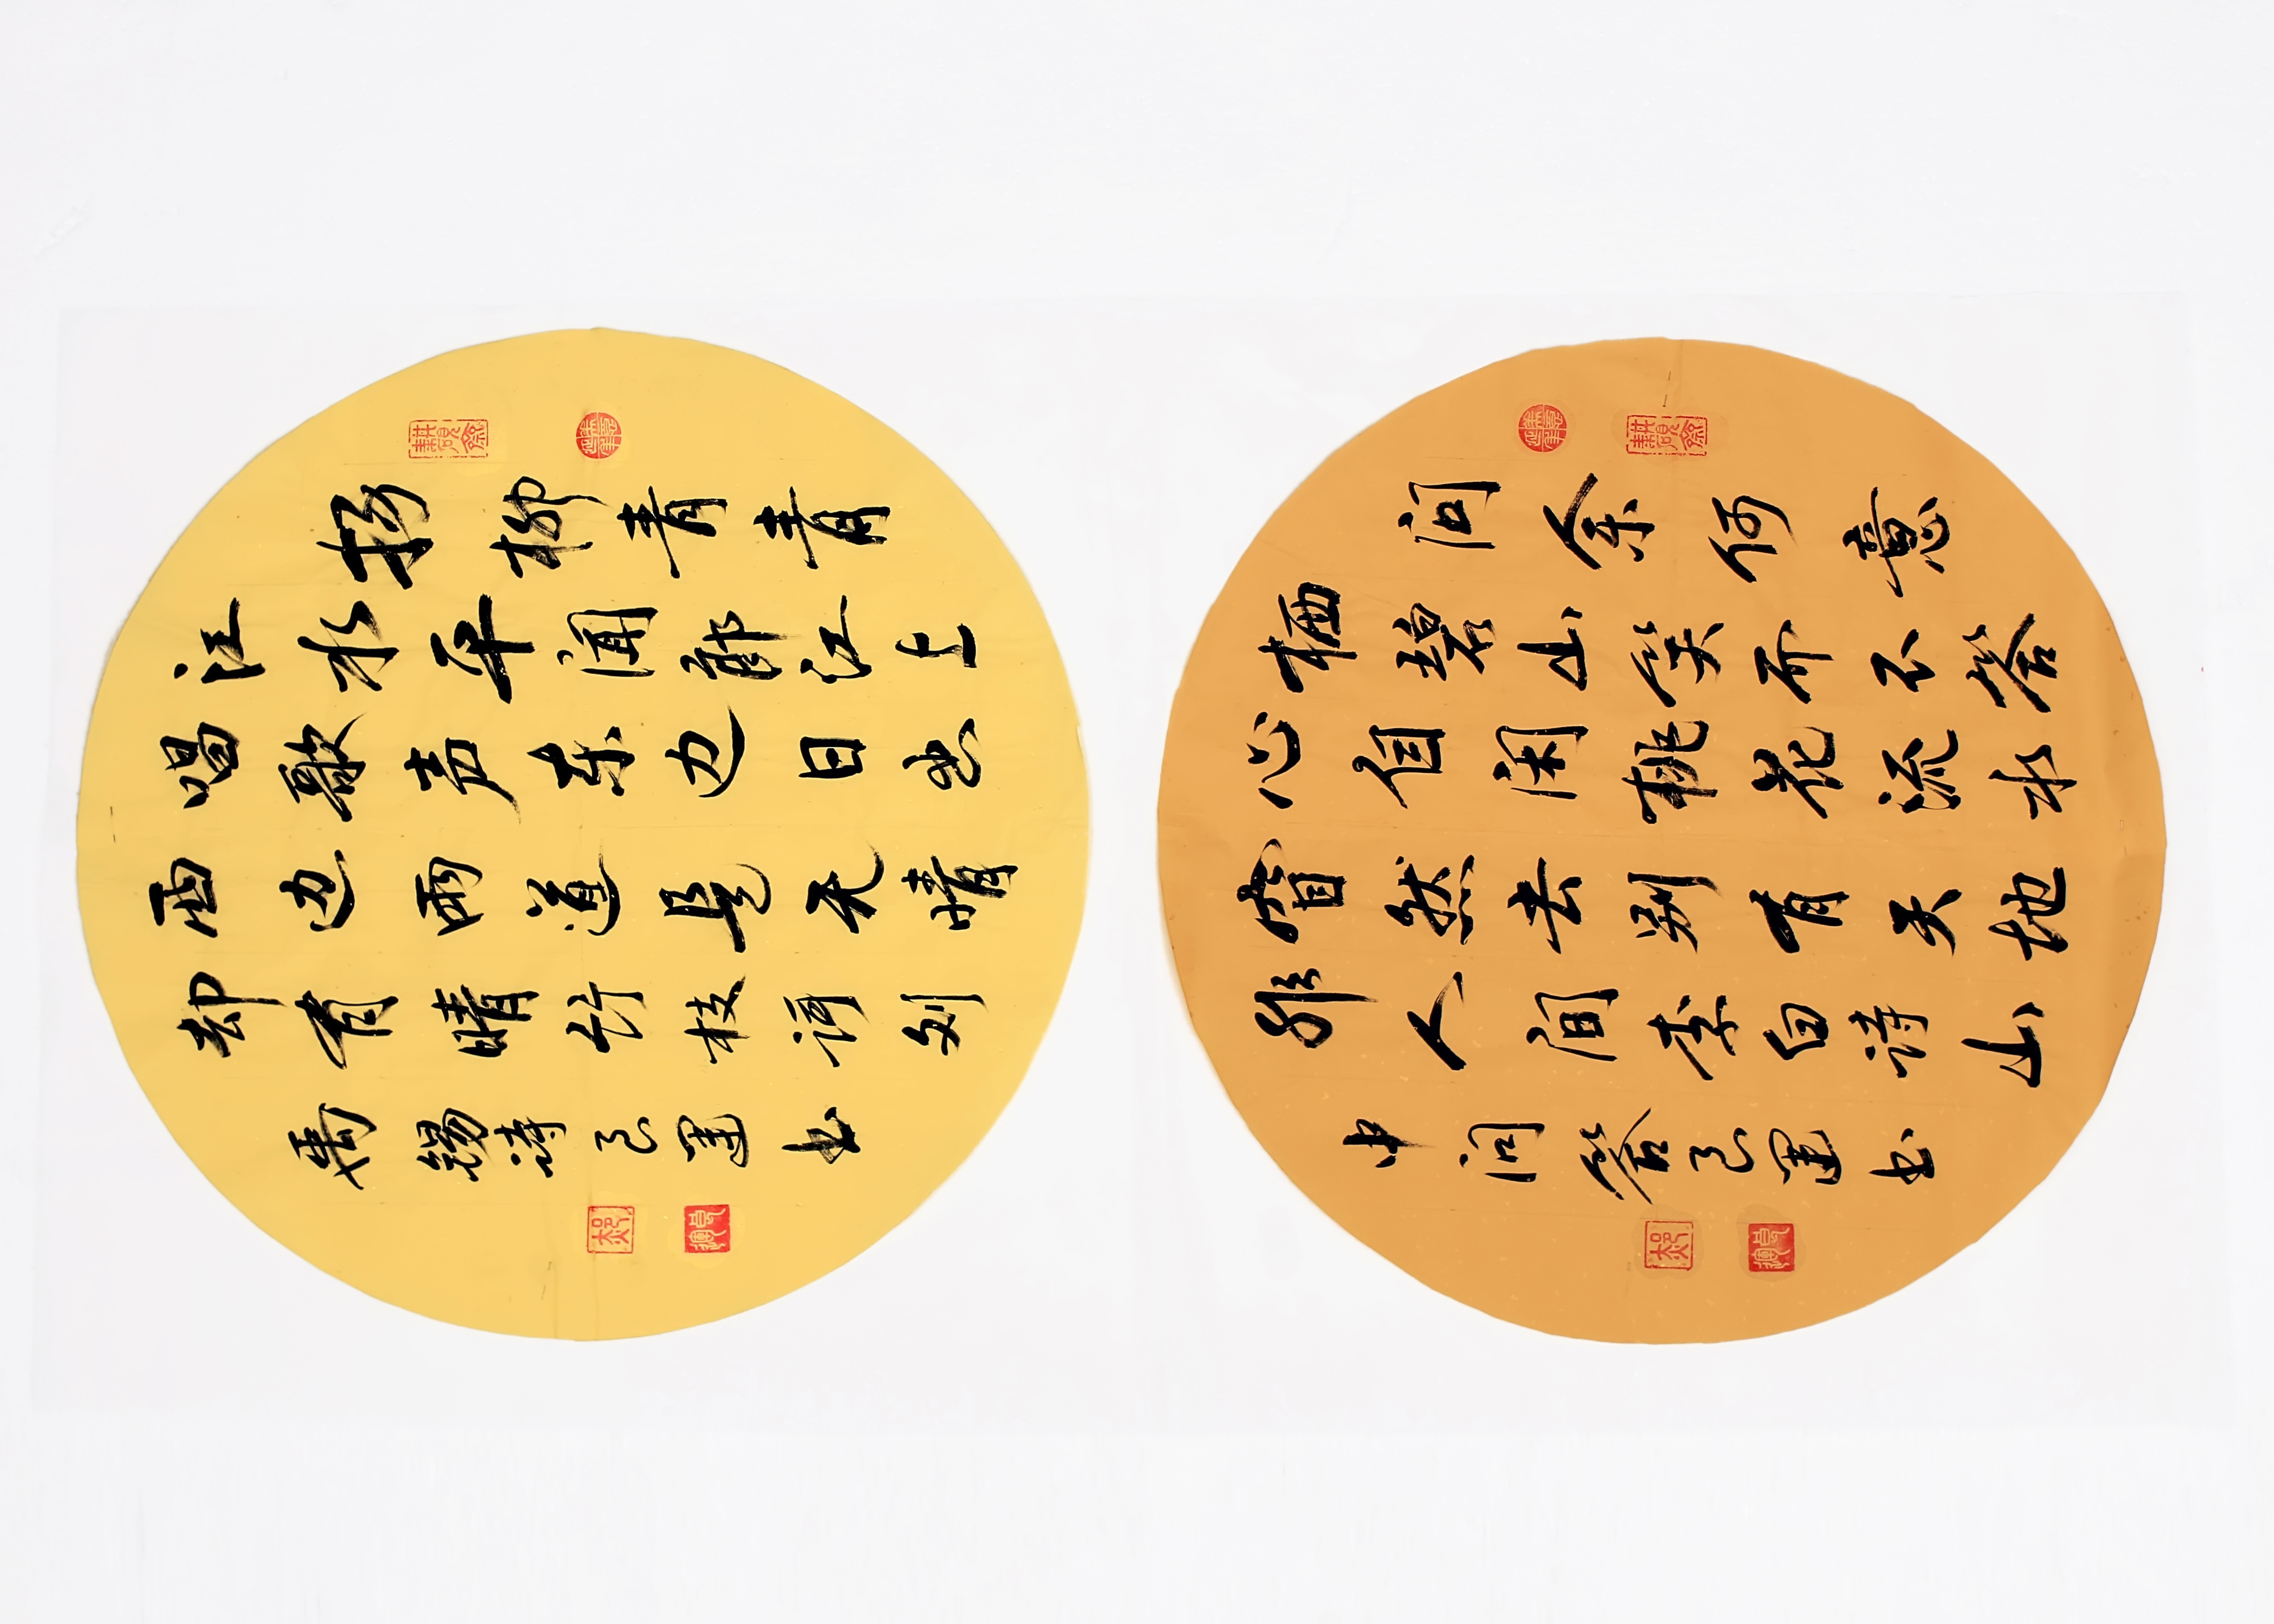 杨柳青青
江水平闻郎江上
唱歌声东边日出
西边雨道是无晴
却有晴竹枝词刘
禹锡诗书
问余何意
栖碧山笑而不答
心自闲桃花流水
窅然去别有天地
非人间李白诗山
中问答书